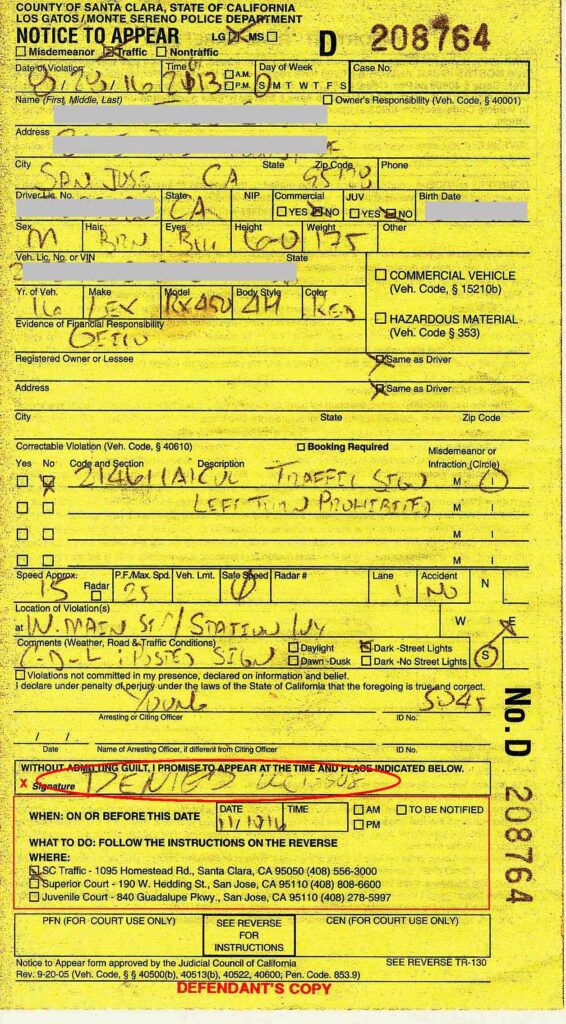 COUNTY OF SANTA CLARA, STATE OF CALIFORNIA
LOS GATOS / MONTE SERENO POLICE DEPARTMENT
NOTICE TO APPEAR LG MS D 208764
Misdemeanor Traffic Nontraffic
Date of Violation Time A.M. P.M. Day of Week S M T W T F S Case No.
Name (First, Middle, Last) Owner's Responsibility (Veh. Code, § 40001)
Address
City State Zip Code Phone
SAN JOSE CA
Driver Lic. No. State NIP Commercial JUV Birth Date
CA YES NO YES NO
Sex Hair Eyes Height Weight Other
M BRN 6-0 175
Veh. Lic. No. or VIN State
COMMERCIAL VEHICLE
(Veh. Code, § 15210b)
Yr. of Veh. Make Model Body Style Color
16 LEX RX450 4H RED
HAZARDOUS MATERIAL
(Veh. Code § 353)
Evidence of Financial Responsibility
Registered Owner or Lessee Same as Driver
Address Same as Driver
City State Zip Code
Correctable Violation (Veh. Code, § 40610) Booking Required Misdemeanor or
Yes No Code and Section Description Infraction (Circle)
21461(A)CVC TRAFFIC SIGN M I
LEFT TURN PROHIBITED M I
M I
M I
Speed Approx. Radar P.F./Max. Spd. Veh. Lmt. Safe Speed Radar # Lane Accident N
15 25 1 NO
Location of Violation(s)
at W. MAIN ST / STATION WY W E
Comments (Weather, Road & Traffic Conditions) Daylight Dark -Street Lights
C-D-L : POSTED SIGN Dawn -Dusk Dark -No Street Lights S
Violations not committed in my presence, declared on information and belief.
I declare under penalty of perjury under the laws of the State of California that the foregoing is true and correct.
YOUNG 5045
Arresting or Citing Officer ID No.
/ /
Date Name of Arresting Officer, if different from Citing Officer ID No.
WITHOUT ADMITTING GUILT, I PROMISE TO APPEAR AT THE TIME AND PLACE INDICATED BELOW.
X Signature DENIED
WHEN: ON OR BEFORE THIS DATE DATE TIME AM PM TO BE NOTIFIED
WHAT TO DO: FOLLOW THE INSTRUCTIONS ON THE REVERSE
WHERE:
SC Traffic - 1095 Homestead Rd., Santa Clara, CA 95050 (408) 556-3000
Superior Court - 190 W. Hedding St., San Jose, CA 95110 (408) 808-6600
Juvenile Court - 840 Guadalupe Pkwy., San Jose, CA 95110 (408) 278-5997
PFN (FOR COURT USE ONLY) SEE REVERSE FOR INSTRUCTIONS CEN (FOR COURT USE ONLY)
Notice to Appear form approved by the Judicial Council of California SEE REVERSE TR-130
Rev. 9-20-05 (Veh. Code, § § 40500(b), 40513(b), 40522, 40600; Pen. Code. 853.9)
DEFENDANT'S COPY
No. D 208764